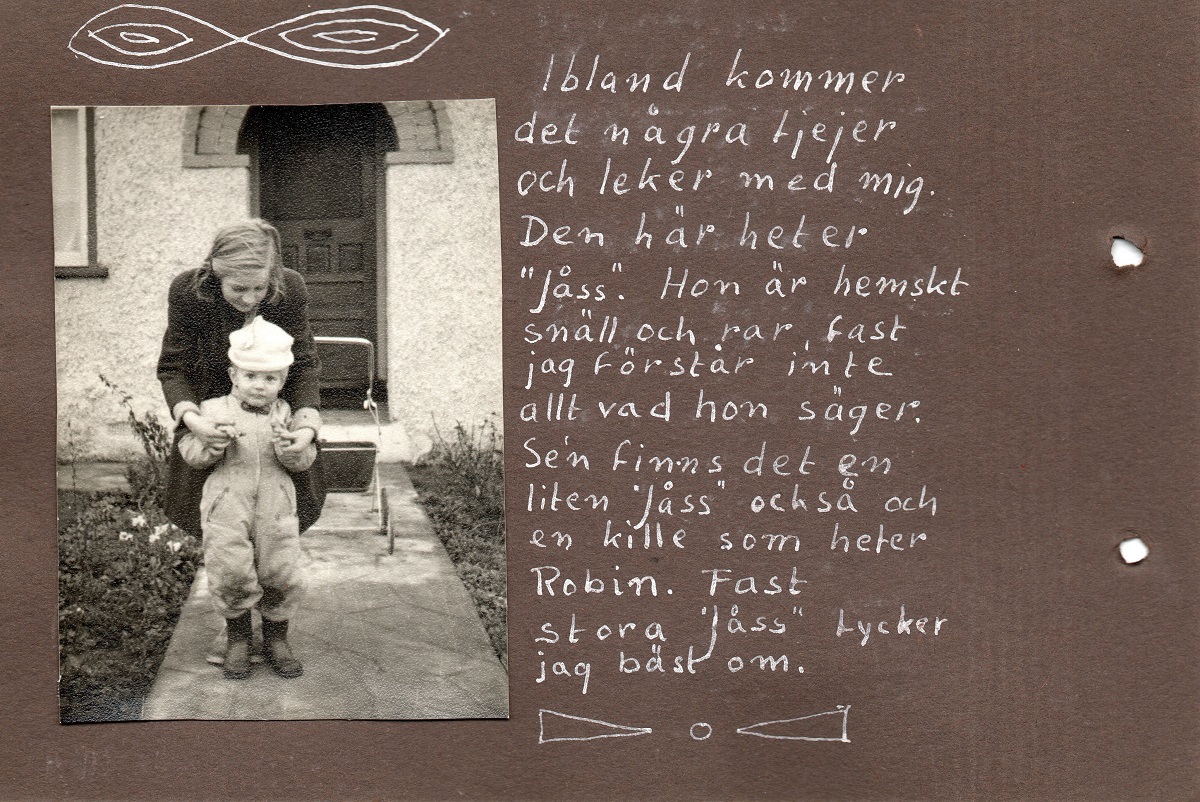 Ibland kommer
det några tjejer
och leker med mig.
Den här heter
"Jåss". Hon är hemskt
snäll och rar, fast
jag förstår inte
allt vad hon säger.
Se'n finns det en
liten "Jåss" också och
en kille som heter
Robin. Fast
stora "Jåss" tycker
jag bäst om.